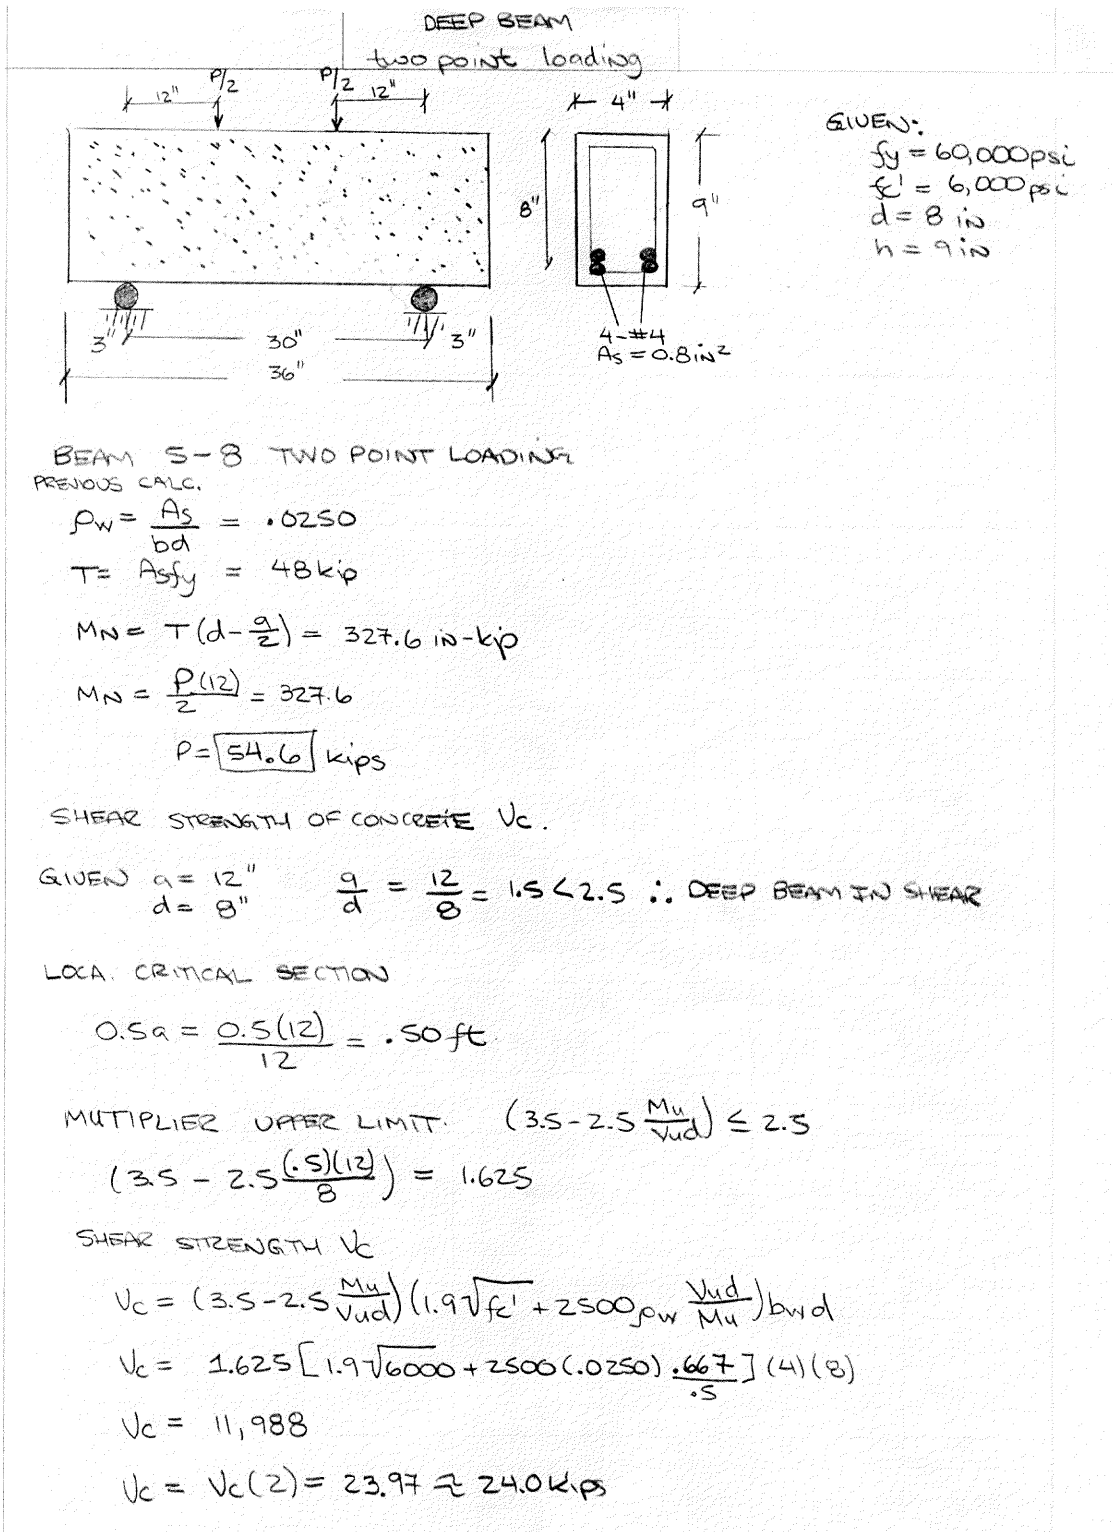 DEEP BEAM
two point loading
12" P/2 P/2 12"
4"
8"
9"
GIVEN:
fy = 60,000 psi
fc' = 6,000 psi
d = 8 in
h = 9 in
3" 30" 3"
36"
4-#4
As = 0.8 in²
BEAM S-8 TWO POINT LOADING
PREVIOUS CALC.
ρw = As/bd = .0250
T = Asfy = 48 kip
MN = T(d-a/2) = 327.6 in-kip
MN = P(12)/2 = 327.6
P = 54.6 kips
SHEAR STRENGTH OF CONCRETE Vc.
GIVEN a = 12" a/d = 12/8 = 1.5 < 2.5 ∴ DEEP BEAM IN SHEAR
d = 8"
LOCA. CRITICAL SECTION
0.5a = 0.5(12)/12 = .50 ft
MUTIPLIER UPPER LIMIT. (3.5-2.5 Mu/Vud) ≤ 2.5
(3.5 - 2.5 (.5)(12)/8) = 1.625
SHEAR STRENGTH Vc
Vc = (3.5-2.5 Mu/Vud)(1.9√fc' + 2500ρw Vud/Mu)bwd
Vc = 1.625[1.9√6000 + 2500(.0250) .667/.5](4)(8)
Vc = 11,988
Vc = Vc(2) = 23.97 ≈ 24.0 kips